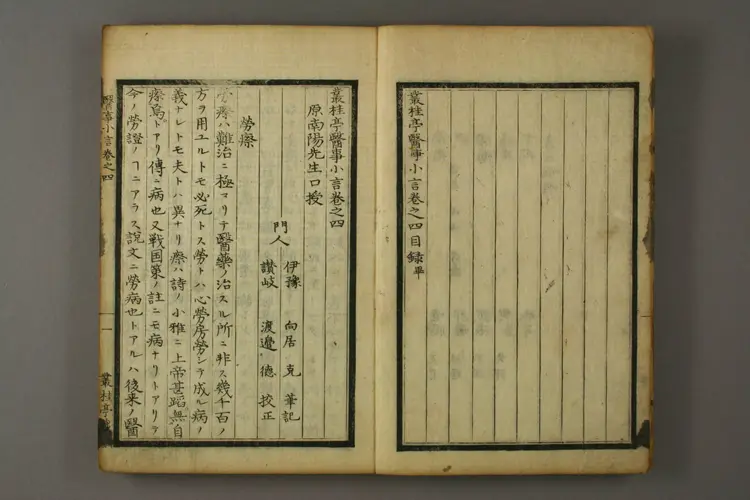 叢桂亭醫事小言卷之四目録畢
叢桂亭醫事小言卷之四
原南陽先生口授
門人
伊豫 向居 克 筆記
讃岐 渡邉 德 挍正
勞瘵
勞瘵ハ難治ニ極マリテ醫藥ノ治スル所ニ非ス幾千百ノ
方ヲ用エルトモ必死トス勞トハ心勞房勞シテ成ル病ノ
義ナレトモ夫トハ異ナリ瘵ハ詩ノ小雅ニ上帝甚蹈無自
瘵焉トアリ傳ニ病也又戦国策ノ註ニモ病ナリトアリテ
今ノ勞證ノヿニアラス説文ニ勞病也トアルハ後来ノ醫
醫事小言卷之四
一
叢桂亭